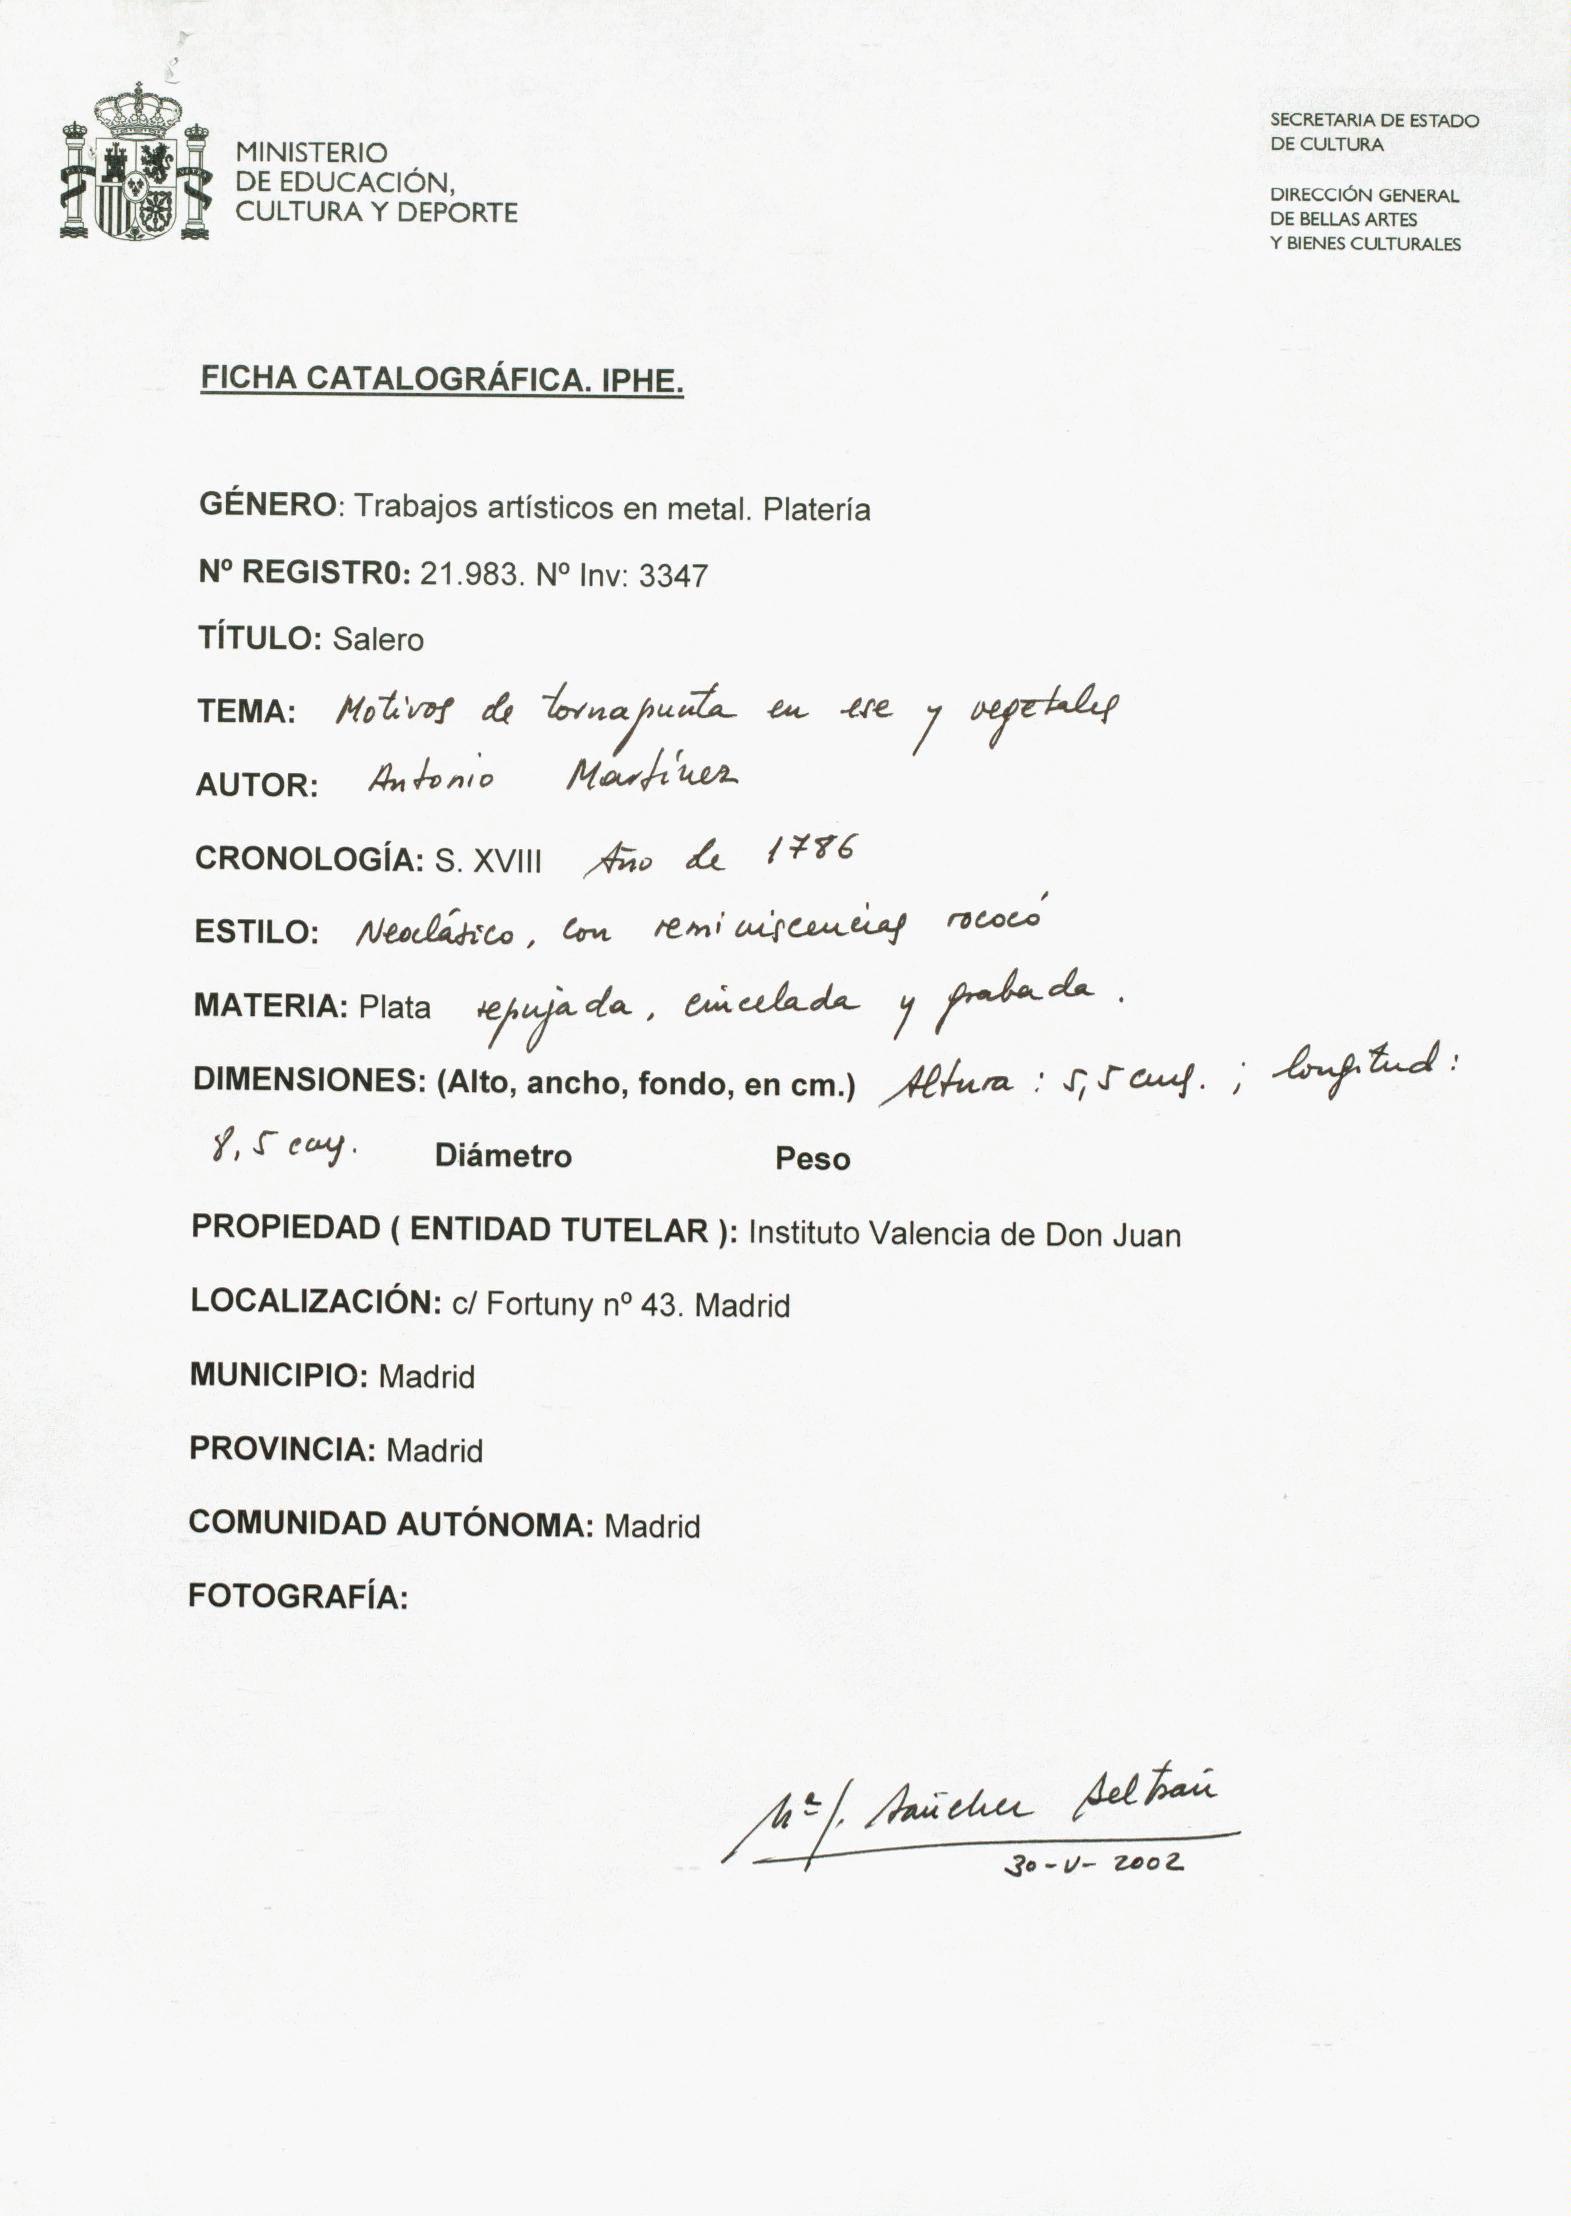 MINISTERIO
DE EDUCACIÓN,
CULTURA Y DEPORTE
SECRETARIA DE ESTADO
DE CULTURA
DIRECCIÓN GENERAL
DE BELLAS ARTES
Y BIENES CULTURALES
FICHA CATALOGRÁFICA. IPHE.
GÉNERO: Trabajos artísticos en metal. Platería
Nº REGISTR0: 21.983. Nº Inv: 3347
TÍTULO: Salero
TEMA: Motivos de tornapunta en ese y vegetales
AUTOR: Antonio Martínez
CRONOLOGÍA: S. XVIII Año de 1786
ESTILO: Neoclásico, con reminiscencias rococó
MATERIA: Plata repujada, cincelada y grabada.
DIMENSIONES: (Alto, ancho, fondo, en cm.) Altura: 5,5 cms.; longitud:
8,5 cms. Diámetro Peso
PROPIEDAD ( ENTIDAD TUTELAR ): Instituto Valencia de Don Juan
LOCALIZACIÓN: c/ Fortuny nº 43. Madrid
MUNICIPIO: Madrid
PROVINCIA: Madrid
COMUNIDAD AUTÓNOMA: Madrid
FOTOGRAFÍA:
Mª J. Sánchez Beltrán
30-V-2002